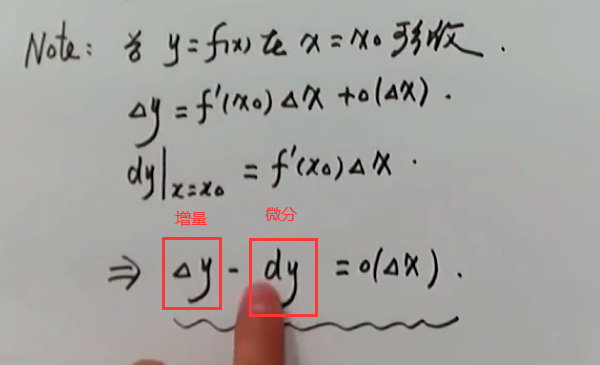 Note: 若 y = f(x) 在 x = x₀ 可微.
Δy = f'(x₀)Δx + o(Δx).
dy|ₓ₌ₓ₀ = f'(x₀)Δx.
增量 微分
⇒ Δy - dy = o(Δx).